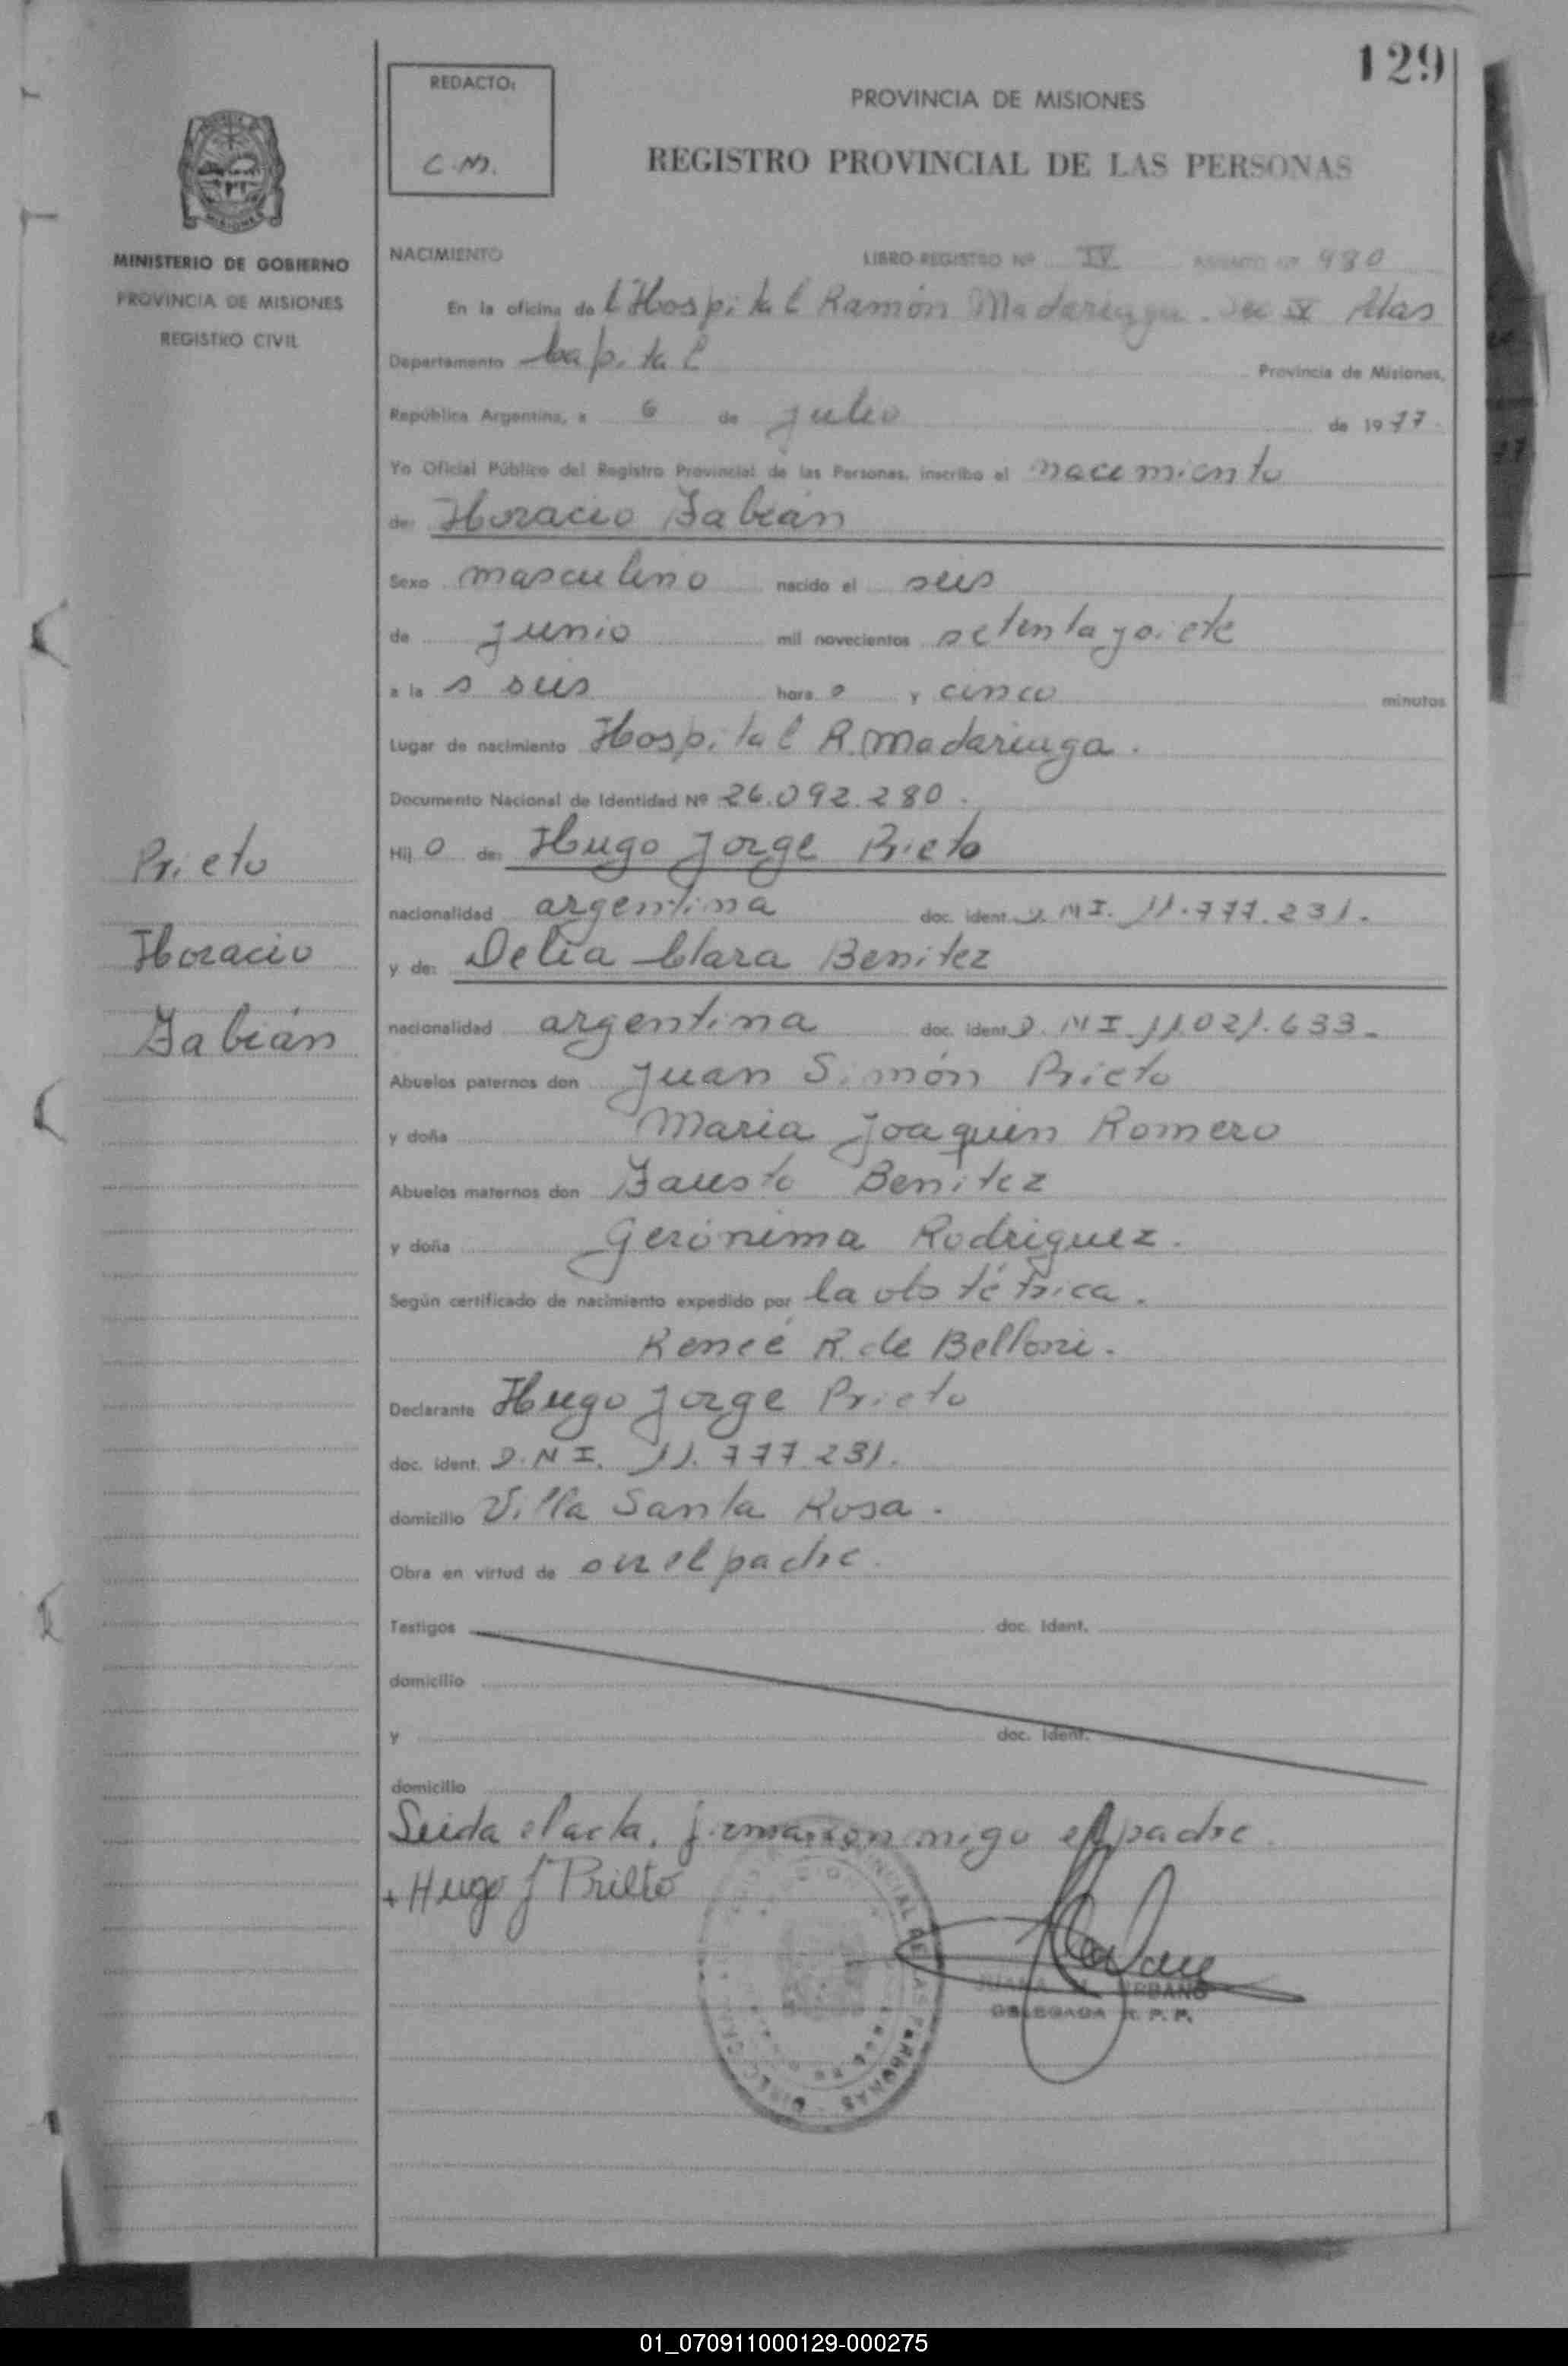 129
REDACTO:
C.M.
PROVINCIA DE MISIONES
REGISTRO PROVINCIAL DE LAS PERSONAS
MISIONES
MINISTERIO DE GOBIERNO
PROVINCIA DE MISIONES
REGISTRO CIVIL
NACIMIENTO LIBRO REGISTRO Nº IV ASIENTO Nº 980
En la oficina de l Hospital Ramón Madariaga. Pdas
Departamento Capital Provincia de Misiones,
República Argentina, a 6 de julio de 1977.
Yo Oficial Público del Registro Provincial de las Personas, inscribo el nacimiento
de: Horacio Fabián
Sexo masculino nacido el seis
de junio mil novecientos setenta y siete
a la s seis hora s y cinco minutos
Lugar de nacimiento Hospital R. Madariaga.
Documento Nacional de Identidad Nº 26.092.280.
Hij o de: Hugo Jorge Prieto
nacionalidad argentina doc. ident. D.N.I. 11.777.231.
y de: Delia Clara Benitez
nacionalidad argentina doc. ident. D.N.I. 11.021.633.
Abuelos paternos don Juan Simón Prieto
y doña Maria Joaquin Romero
Abuelos maternos don Fausto Benitez
y doña Gerónima Rodriguez.
Según certificado de nacimiento expedido por la obstétrica.
Reneé R. de Belloni.
Declarante Hugo Jorge Prieto
doc. ident. D.N.I. 11.777.231.
domicilio Villa Santa Rosa.
Obra en virtud de ser el padre.
Testigos doc. Ident.
domicilio
y doc. Ident.
domicilio
Leida el acta, firma conmigo el padre.
+ Hugo J Prieto
Prieto
Horacio
Fabián
JUANA URBANO
DELEGADA R. P. P.
01_070911000129-000275